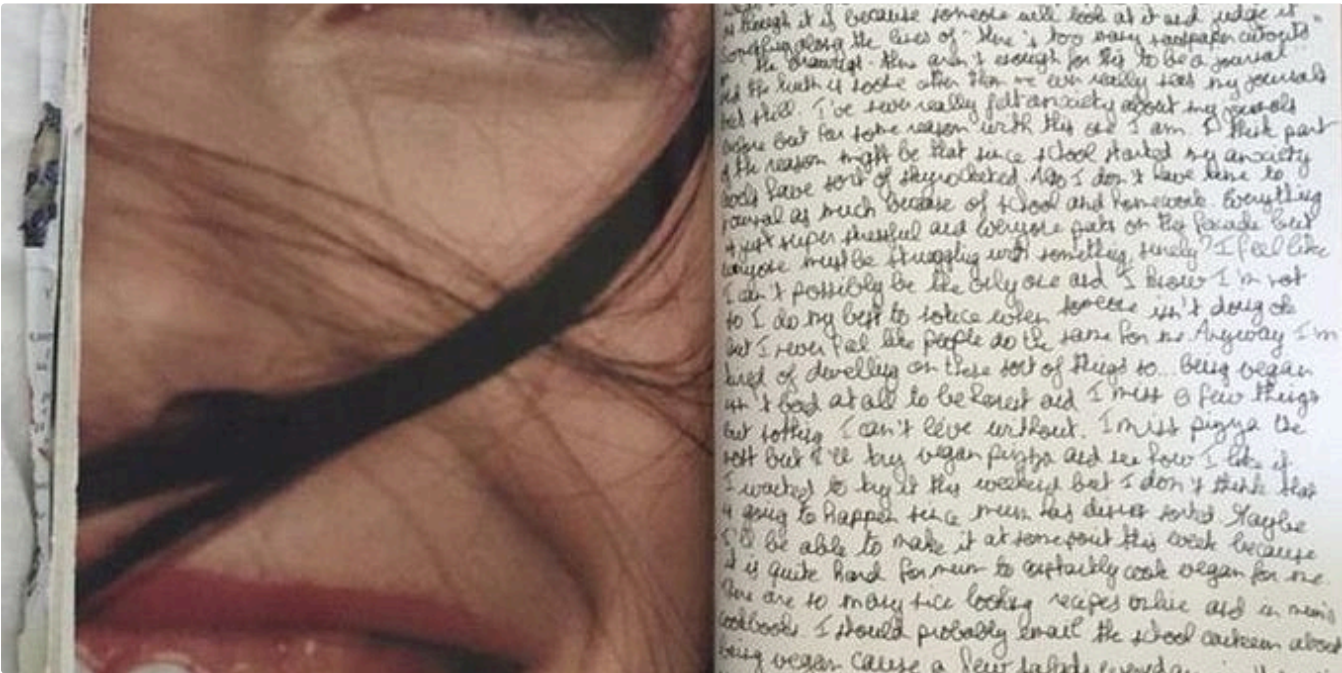 as though it is because someone will look at it and judge it
something along the lines of "there's too many newspaper cutouts
the drawings there aren't enough for this to be a journal
but the truth is noone other than me can really see my journals
but still. I've never really felt anxiety about my journals
before but for some reason with this one I am. I think part
of the reason might be that since school started my anxiety
have sort of skyrocketed. Also I don't have time to
journal as much because of school and homework. Everything
is just super stressful and everyone puts on this facade but
everyone must be struggling with something, surely? I feel like
I can't possibly be the only one and I know I'm not
so I do my best to notice when someone isn't doing ok
but I never feel like people do the same for me. Anyway I'm
tired of dwelling on these sort of things so... Being vegan
isn't bad at all to be honest and I miss a few things
but nothing I can't live without. I miss pizza the
most but I'll try vegan pizza and see how I like it
I wanted to try it this weekend but I don't think that
is going to happen since mum has dinner sorted. Maybe
I'll be able to make it at some point this week because
it is quite hard for mum to constantly cook vegan for me
There are so many nice looking recipes online and in mum's
cookbooks. I should probably email the school canteen about
being vegan cause a few salads everyday